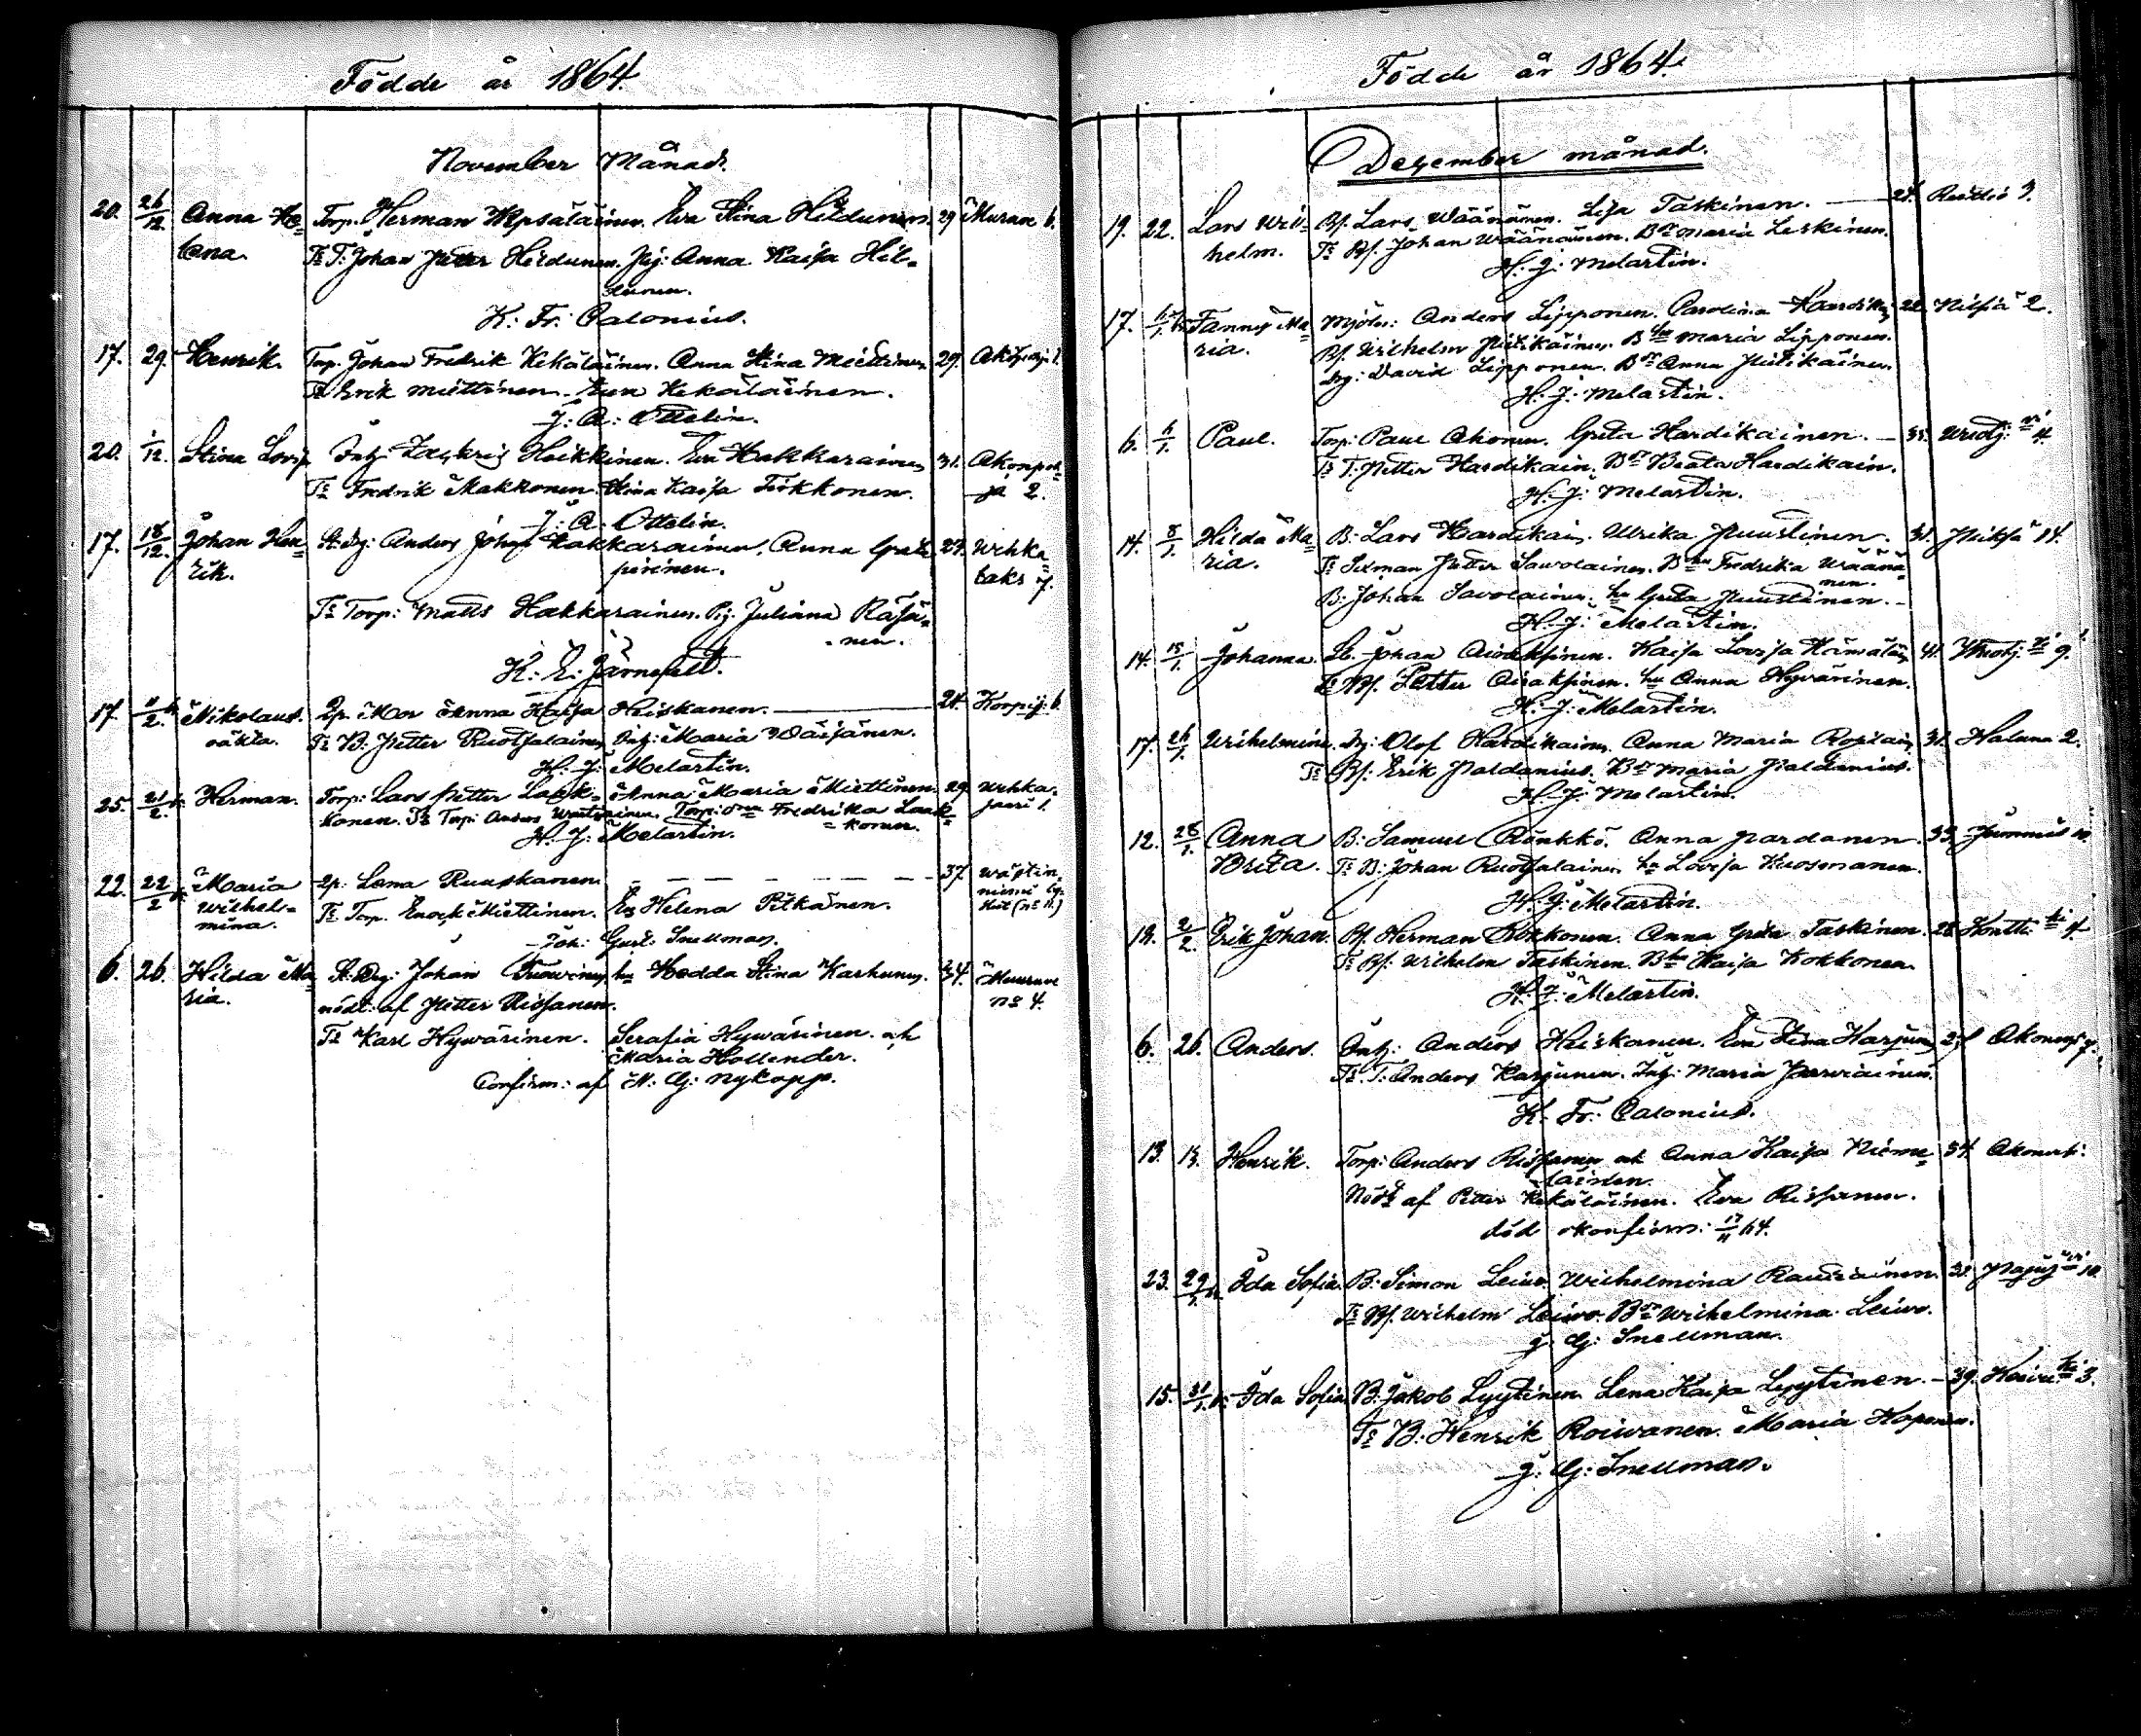 Födde år 1864.
November Månad.
20. 26/12 Anna He= Torp. Herman Wepsäläinen. Eva Stina Hildunen. 29 Muruu 6.
lena. Ts T: Johan Petter Hildunen. Pig: Anna Kaisa Hil=
dunen.
K: Fr: Calonius.
17. 29. Henrik. Torp. Johan Fredrik Kekäläinen. Anna Stina Miettinen 29.
Ts Erik Miettinen. Eva Kekäläinen.
J: A: Ottelin.
20. 1/12. Stina Lovisa Inh: Zachris Heikkinen. Eva Hakkarainen 31. Akonpoh=
Ts Fredrik Makkonen. Stina Kaisa Tirkkonen. ja 2.
J: A: Ottelin.
17. 18/12. Johan Hen= St. Drg: Anders Johan Hakkarainen. Anna Greta 27. Wehka
rik. Piirinen. laks 7.
Ts Torp: Matts Hakkarainen. Pig. Juliana Räsä=
nen.
K: E: Järnefelt.
17. Nikolaus. Mor Anna Kaisa Heiskanen. 24. Korpij: 6
oäkta. Ts B: Petter Ruotsalainen Inh: Maria Wäisänen.
H: J: Melartin.
25. 21/2 Herman. Torp: Lars Petter Laak= Anna Maria Miettinen. 29. Wehka=
konen. Ts Torp: Anders Torp: Fredrika Laak= jaeri 1.
konen.
H: J: Melartin.
22. 22/2 Maria Lena Ruuskanen. — — — — — — 37. Wästin=
Wilhel= Ts Torp. Enock Miettinen. Helena Pitkänen. niemi
mina.
Joh: Gust: Snellman.
6. 26. Hilda Ma St: Drg: Johan Tuovinen hu Hedda Stina Karhunen. 34. Muuruve
ria. nödt: af Petter Rissanen. no 4.
Ts Karl Hyvärinen. Serafia Hyvärinen. och
Maria Hollender.
Confirm: af N: G: Nykopp.
Födde år 1864.
Dezember månad.
19. 22. Lars Wil= Bf. Lars Wäänänen. Lisa Taskinen. — 24. Reidiö 3.
helm. Ts Bf. Johan Wäänänen. Bdr Maria Leskinen.
H: J: Melartin.
17. Fanny Ma= Mjöln: Anders Lipponen. Carolina 22. Nilsiä 2.
ria. Bf. Wilhelm Pitikäinen. Maria Lipponen.
Drg: David Lipponen. Bdr Anna Pitikäinen.
H: J: Melartin.
6. 6/1. Paul. Torp: Paul Ahonen. Greta Hardikainen. — 4.
Ts T: Petter Hardikain. Bdr Beata Hardikain.
H: J: Melartin.
14. 8/1. Hilda Ma= B: Lars Hardikain. Ulrika Puustinen. 31. 14.
ria. Ts Petter Savolainen. Fredrika Wäänä=
nen.
B: Johan Savolainen. hu Greta Puustinen.
H: J: Melartin.
14. 15/1. Johanna. Johan Airaksinen. Kaisa Lovisa Hämäläi 41. 9.
Ts Bf. Petter Airaksinen. hu Anna Hyvärinen.
H: J: Melartin.
17. 26/1. Wilhelmina. Drg: Olof Hardikainen. Anna Maria 31. Haluna 2.
Ts Bf: Erik Paldanius. Bdr Maria Paldanius.
H: J: Melartin.
12. 28/1. Anna B: Samuel Rönkkö. Anna Pardanen. 33.
Brita. Ts B: Johan Ruotsalainen hu Lovisa Kuosmanen.
H: J: Melartin.
13. 2/2. Erik Johan. Bf. Herman Kokkonen. Anna Greta Taskinen. 28. Kontti
Ts Bf: Wilhelm Taskinen. Kaisa Kokkonen.
H: J: Melartin.
6. 26. Anders. Inh: Anders Heiskanen. Eva Stina Karjunen 7.
Ts T: Anders Karjunen. Inh: Maria
K: Fr: Calonius.
13. 13. Henrik. Torp: Anders Rissanen och Anna Kaisa Niemi= 34.
läinen.
Nödt af Petter Kekäläinen. Eva Rissanen.
död okonfirm: 17/11 64.
23. 29/1. Ida Sofia. B: Simon Leivo. Wilhelmina Rautiainen. 31. 10.
Ts Bf. Wilhelm Leivo. Bdr Wilhelmina Leivo.
J: G: Snellman.
15. 31/1. Ida Sofia B: Jakob Lyytinen. Lena Kaisa Lyytinen. — 39. 3.
Ts B: Henrik Roivanen. Maria Koponen.
J: G: Snellman.